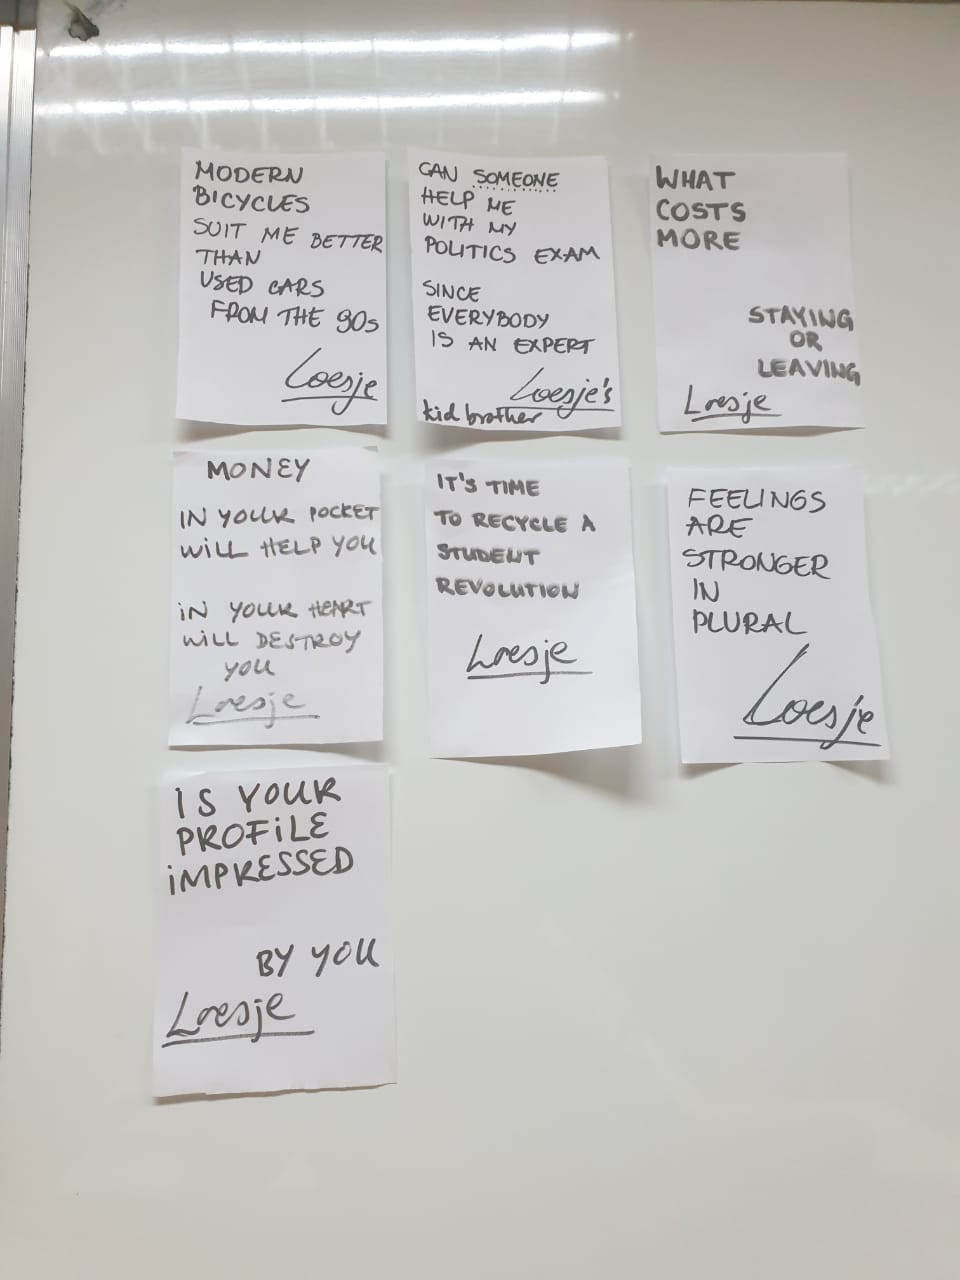 MODERN
BICYCLES
SUIT ME BETTER
THAN
USED CARS
FROM THE 90s
Loesje
CAN SOMEONE
HELP ME
WITH MY
POLITICS EXAM
SINCE
EVERYBODY
IS AN EXPERT
Loesje's
kid brother
WHAT
COSTS
MORE
STAYING
OR
LEAVING
Loesje
MONEY
IN YOUR POCKET
WILL HELP YOU
IN YOUR HEART
WILL DESTROY
YOU
Loesje
IT'S TIME
TO RECYCLE A
STUDENT
REVOLUTION
Loesje
FEELINGS
ARE
STRONGER
IN
PLURAL
Loesje
IS YOUR
PROFILE
IMPRESSED
BY YOU
Loesje